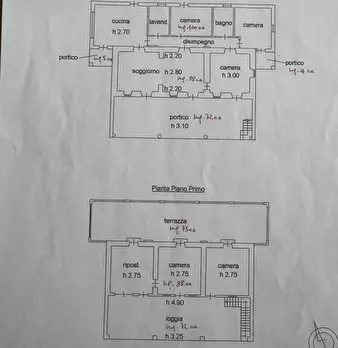 cucina
h 2.70
lavand.
camera
bagno
camera
disimpegno
portico
h 2.20
soggiorno
h 2.80
h 2.20
camera
h 3.00
portico
portico
h 3.10
Pianta Piano Primo
terrazza
ripost.
h 2.75
camera
h 2.75
camera
h 2.75
h 4.90
loggia
h 3.25